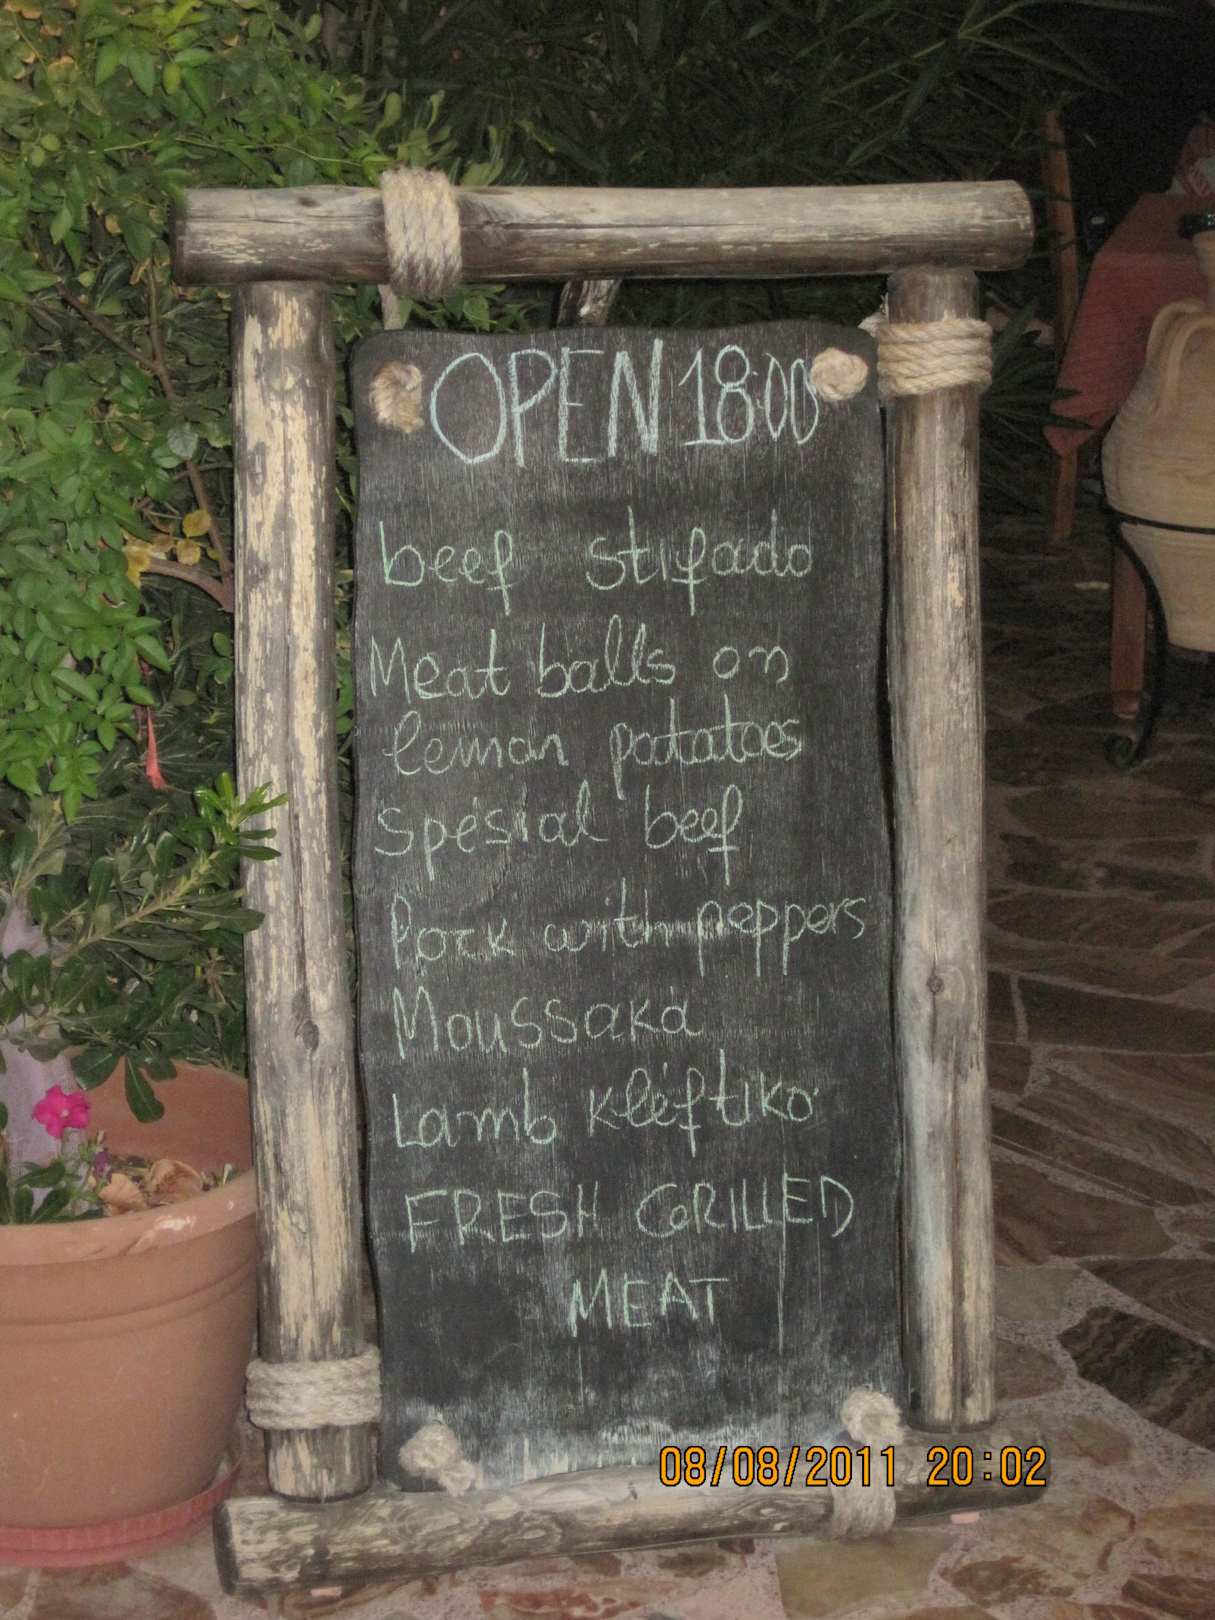 OPEN 18:00
beef stifado
Meat balls on
lemon patatoes
spésial beef
Pork with peppers
Moussaká
Lamb kléftiko
FRESH GRILLED
MEAT
08/08/2011 20:02